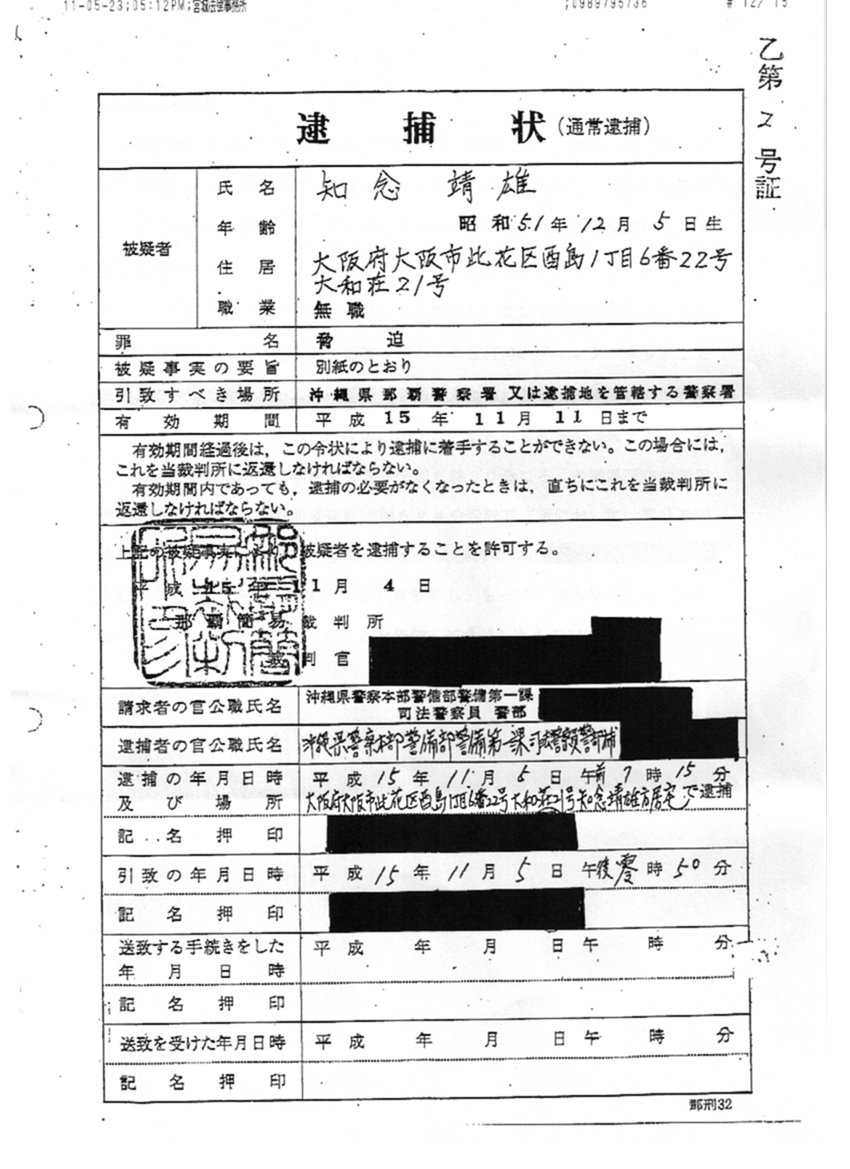 11-05-23;05:12PM;宮城法律事務所 ;0989795736 # 12/ 15
乙第2号証
逮捕状(通常逮捕)
被疑者
氏名 知念 靖雄
年齢 昭和51年12月5日生
住居 大阪府大阪市此花区酉島1丁目6番22号
大和荘21号
職業 無職
罪名 脅迫
被疑事実の要旨 別紙のとおり
引致すべき場所 沖縄県那覇警察署又は逮捕地を管轄する警察署
有効期間 平成15年11月11日まで
有効期間経過後は,この令状により逮捕に着手することができない。この場合には,
これを当裁判所に返還しなければならない。
有効期間内であっても,逮捕の必要がなくなったときは,直ちにこれを当裁判所に
返還しなければならない。
上記の被疑事実により,被疑者を逮捕することを許可する。
平成15年11月4日
那覇簡易裁判所
裁判官
請求者の官公職氏名 沖縄県警察本部警備部警備第一課
司法警察員 警部
逮捕者の官公職氏名 沖縄県警察本部警備部警備第一課司法警察員警部補
逮捕の年月日時 平成15年11月5日午前7時15分
及び場所 大阪府大阪市此花区酉島1丁目6番22号大和荘21号知念靖雄方居宅で逮捕
記名押印
引致の年月日時 平成15年11月5日午後零時50分
記名押印
送致する手続きをした 平成 年 月 日午 時 分
年月日時
記名押印
送致を受けた年月日時 平成 年 月 日午 時 分
記名押印
那刑32